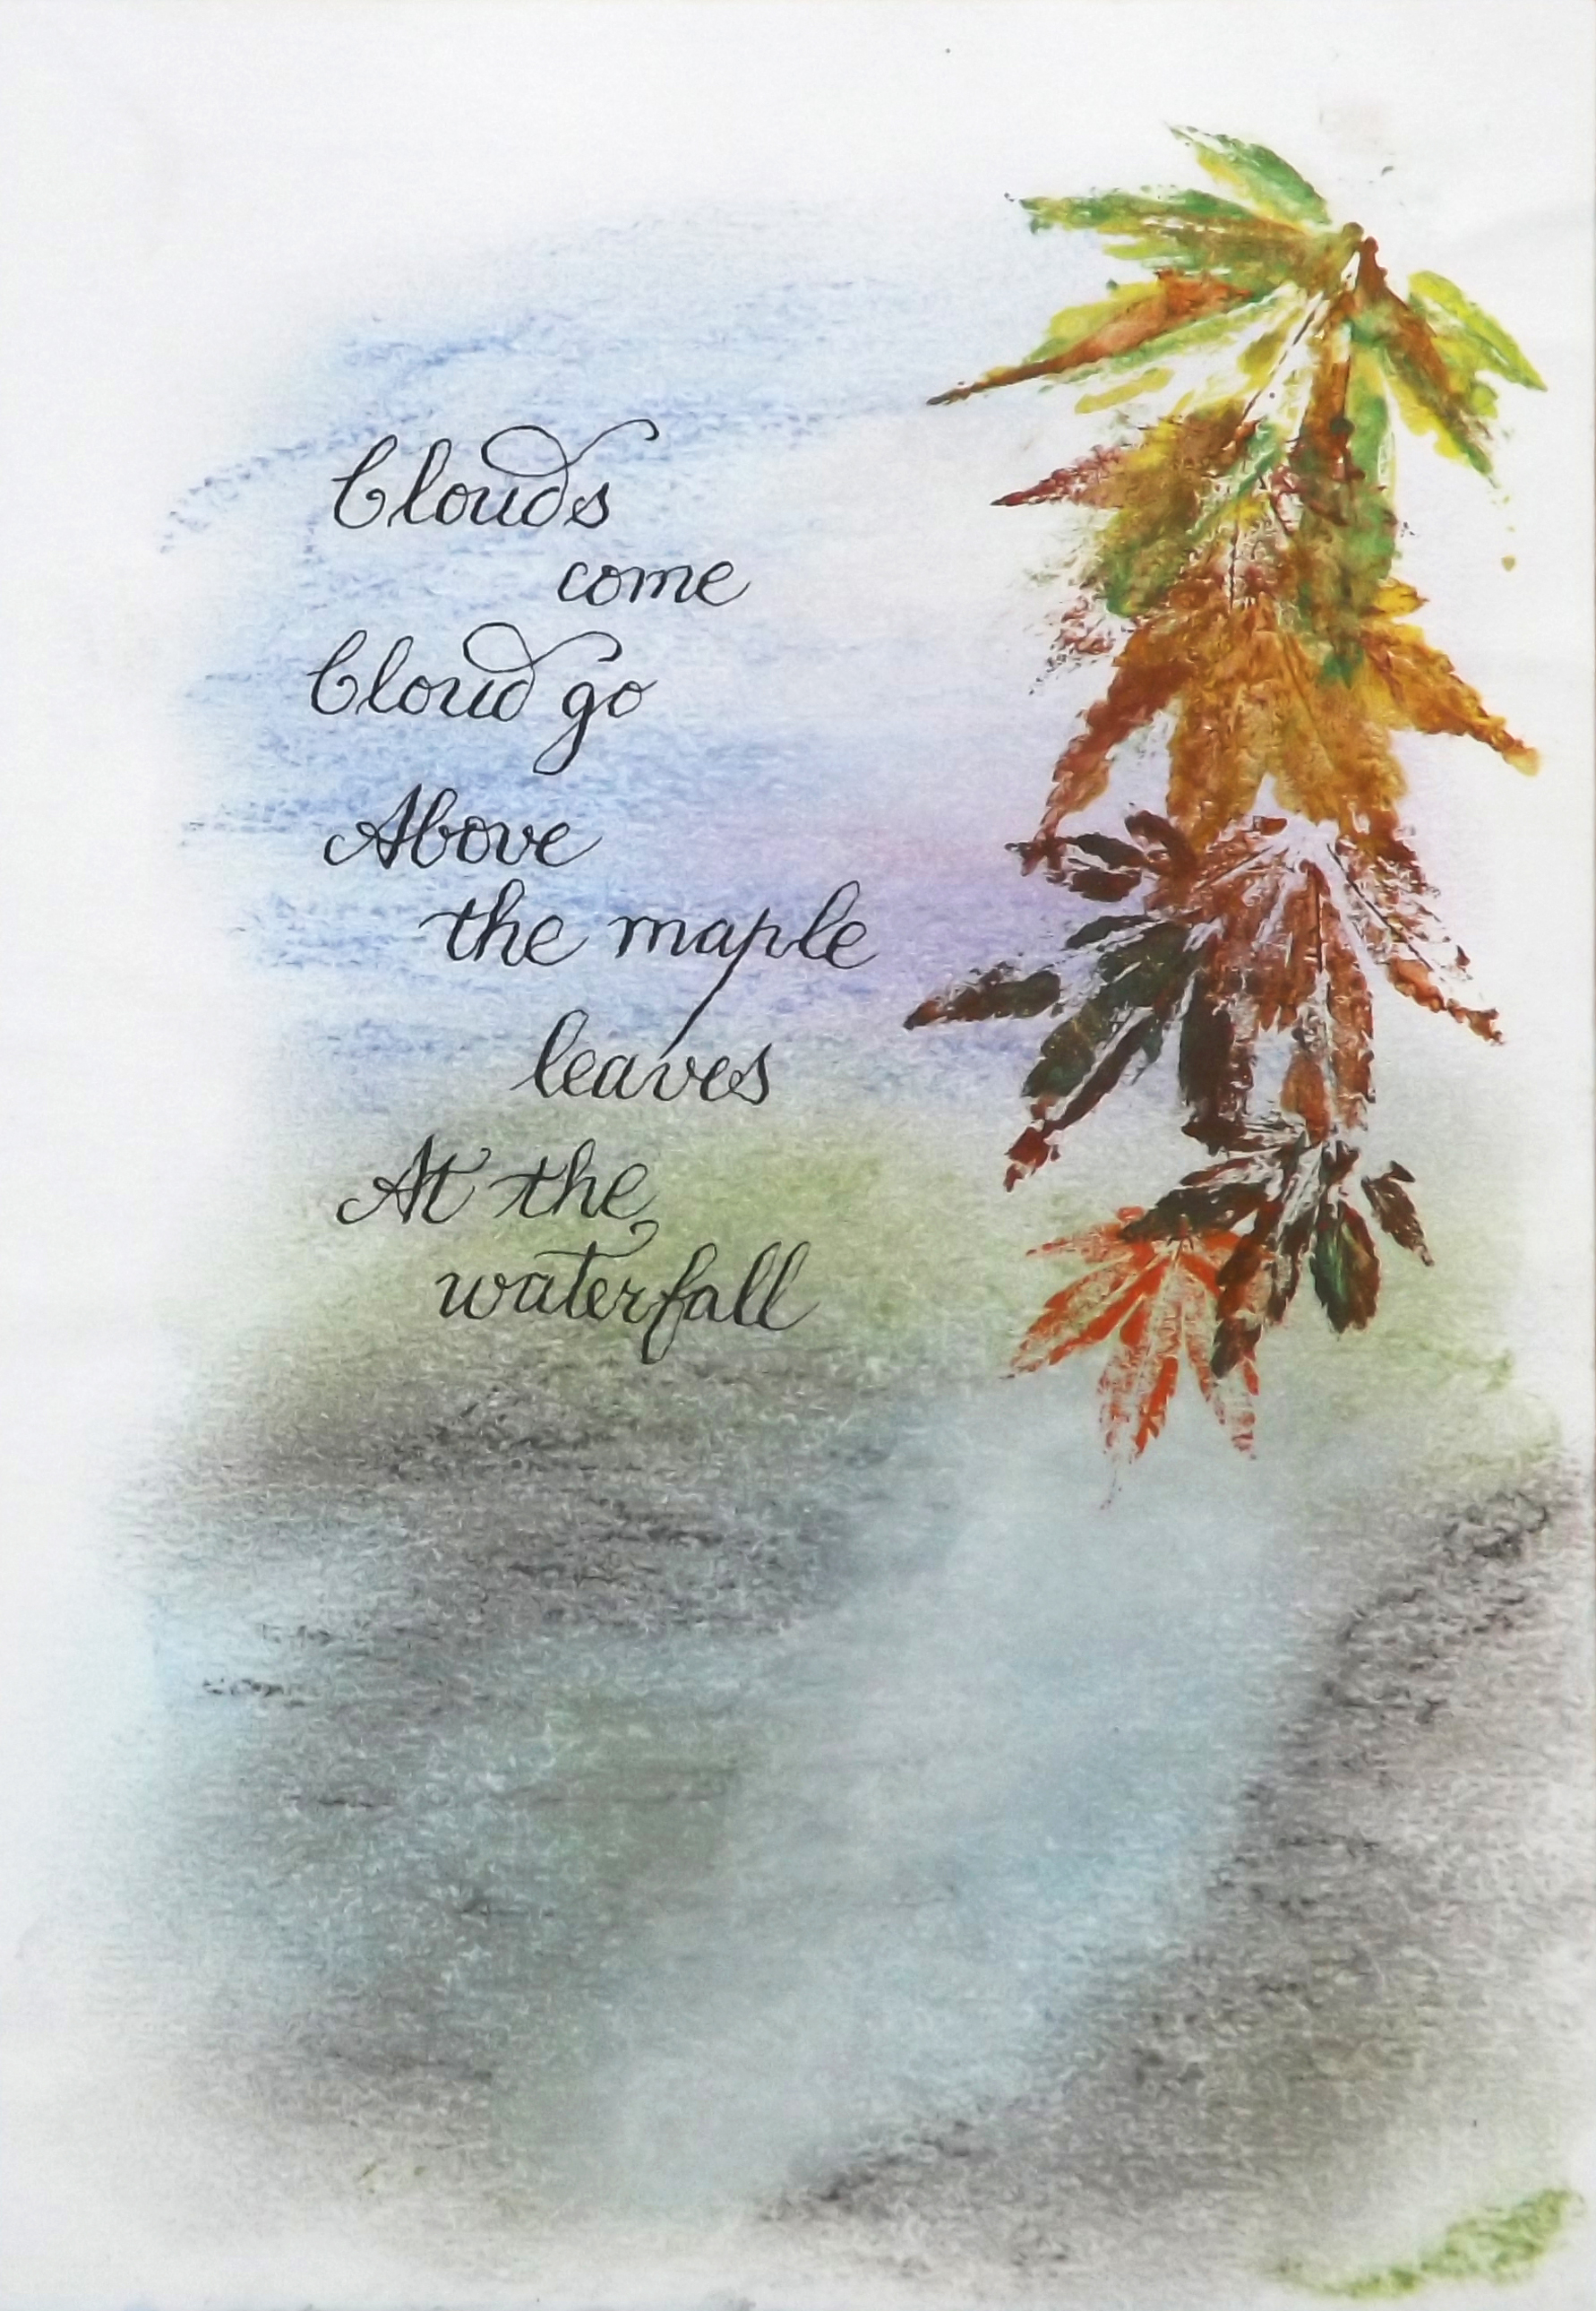 Clouds
come
Cloud go
Above
the maple
leaves
At the
waterfall